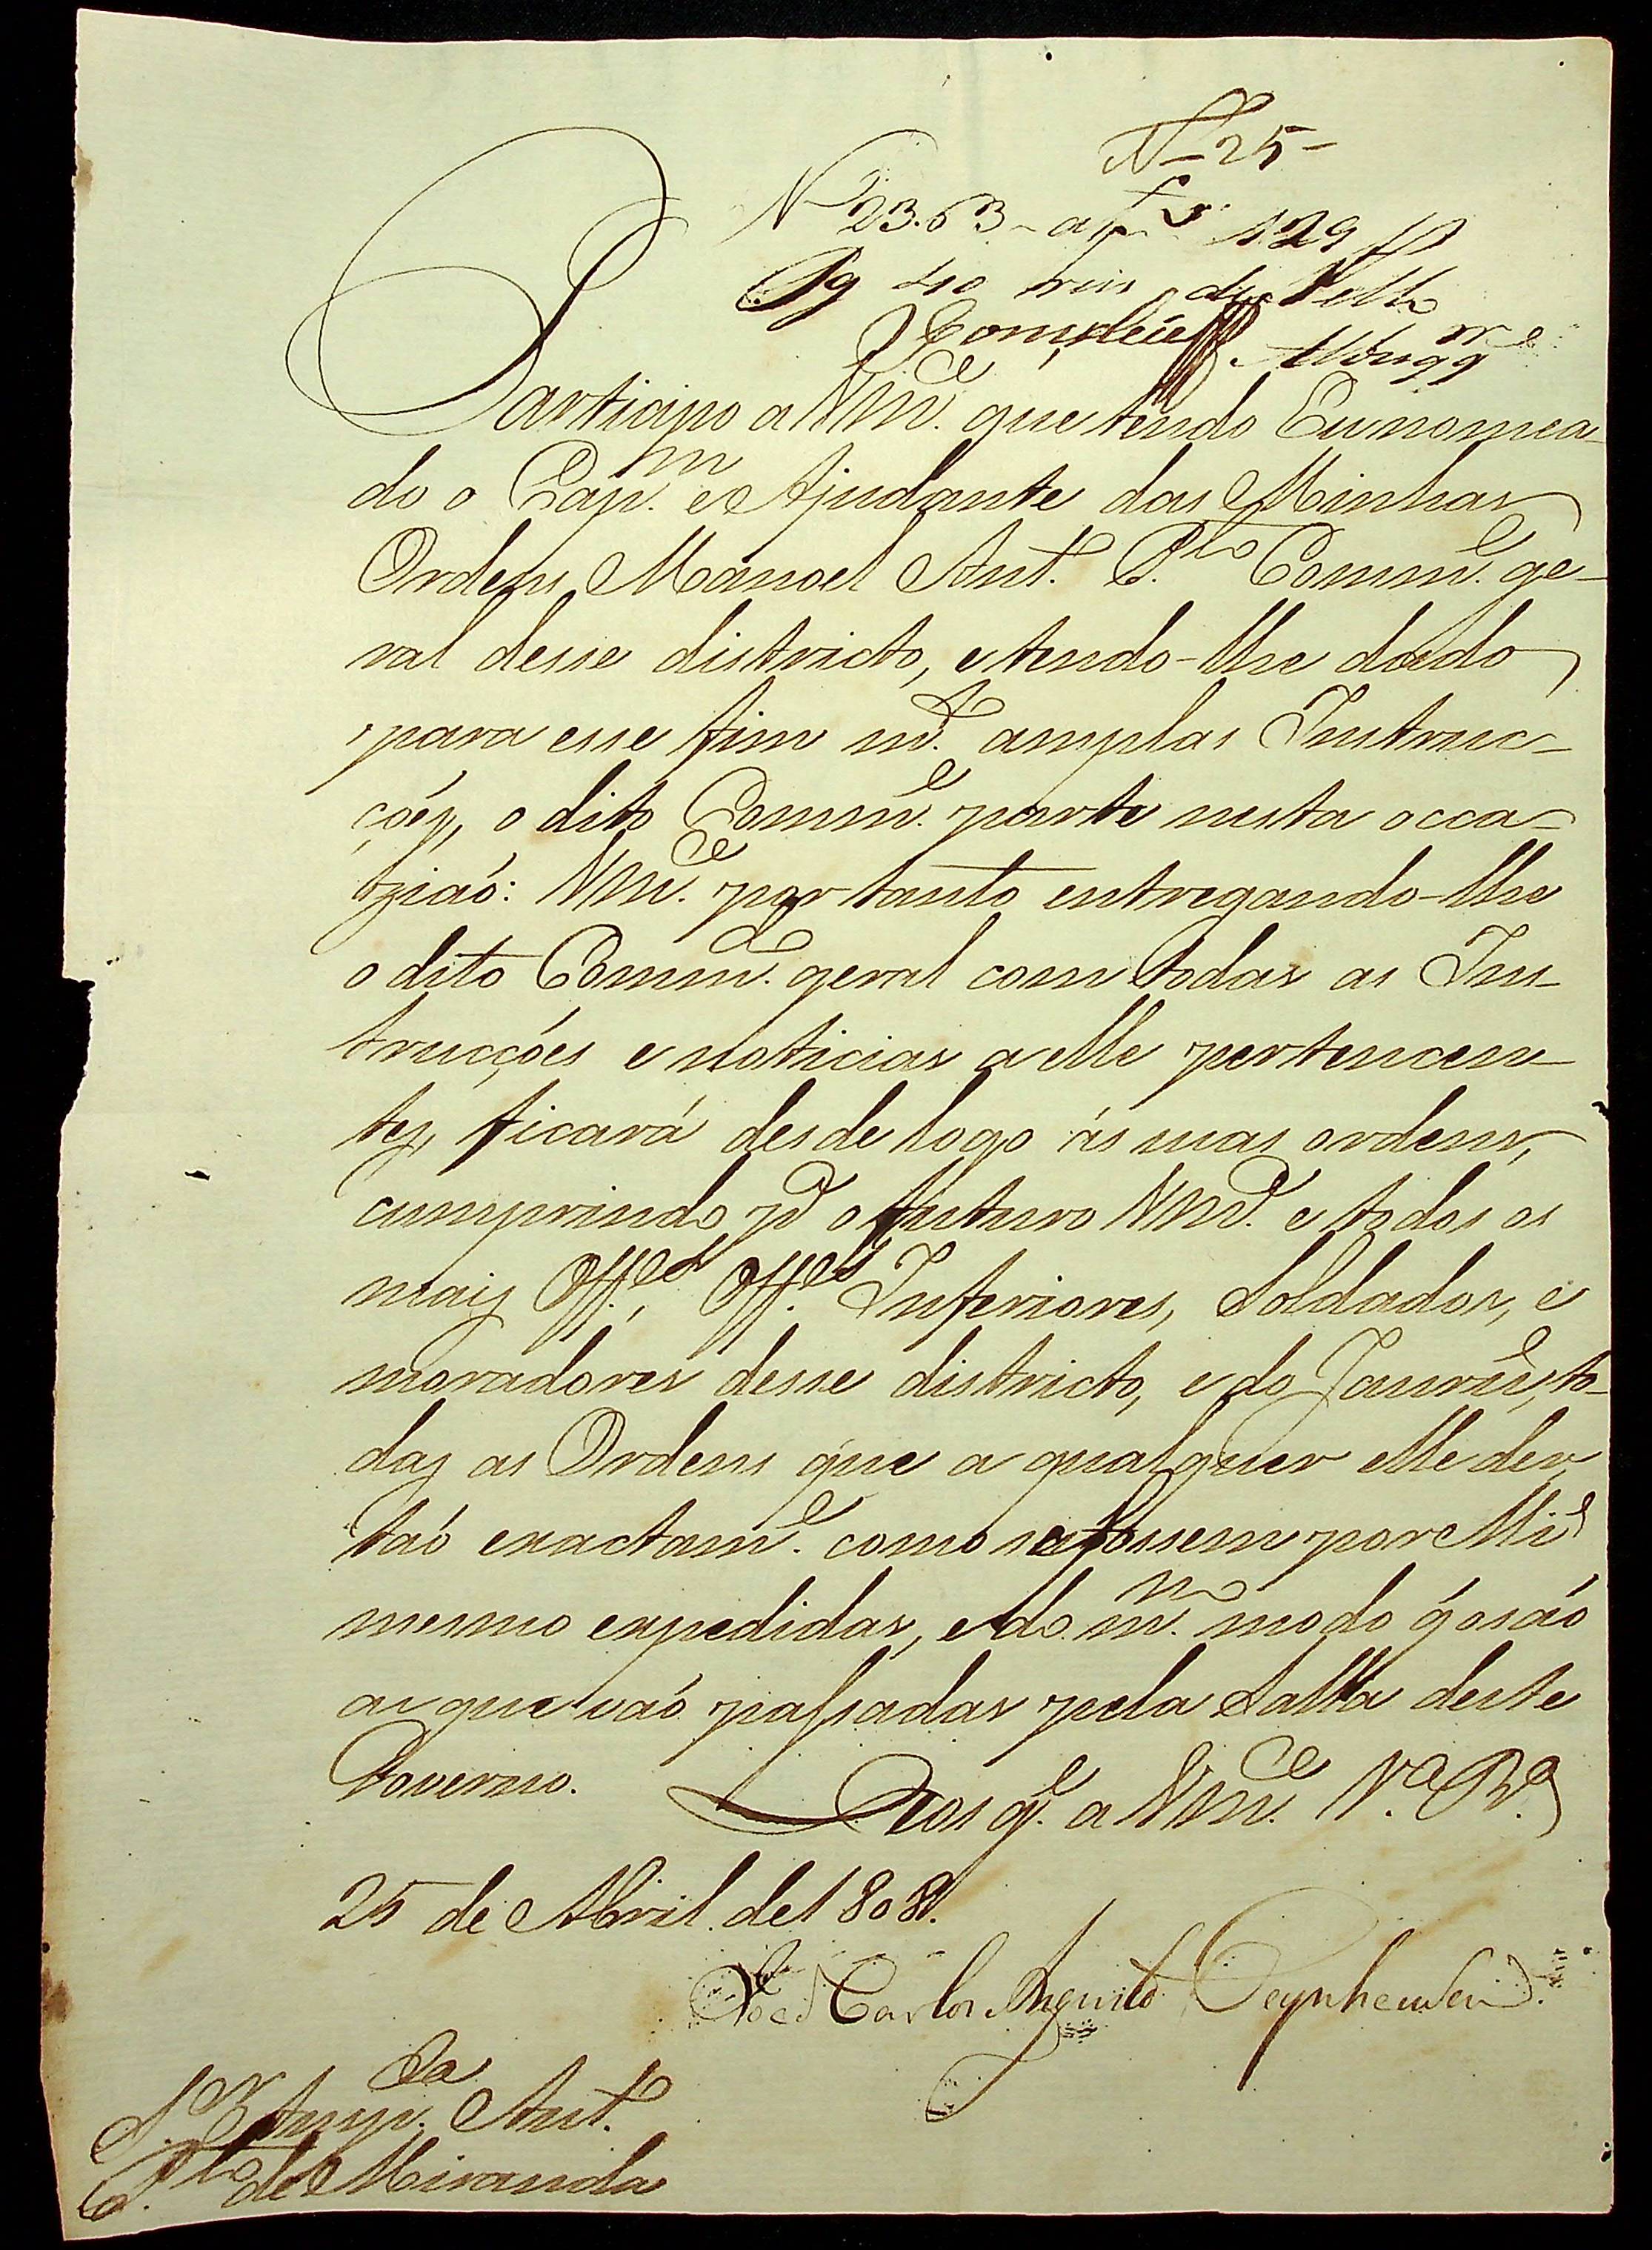 N 25
N 23.63 a f 129
Pg 40 reis de Sello
Participo a Vm.ce que tendo Eu nomea-
do o Cap.m e Ajudante das Minhas
Ordens Manoel Ant.o P.to Comm.e ge-
ral desse districto, e tendo-lhe dado
para esse fim m.to amplas Instruc-
ções, o dito Comm.e parte nesta occa-
ziaó: Vm.ce por tanto entregando-lhe
o dito Comm.do geral com todas as Ins-
trucções e noticias a elle pertencen-
tes, ficará desde logo ás suas ordens,
cumprindo p.a o futuro Vm.ce e todos os
mais Off.es, Off.es Inferiores, Soldados, e
moradores desse districto, e do Jaurú, to-
das as Ordens que a qualquer elle der,
taó exactam.e como se fossem por Mi
mesmo expedidas, e do m.mo modo q̃ o saó
as que vaó passadas pela Salla deste
Governo. Deos g.e a Vm.ce V.a B.a
25 de Abril de 1808.
João Carlos Augusto Oeynhausen
S.r Anp.da Ant.o
P.to de Miranda